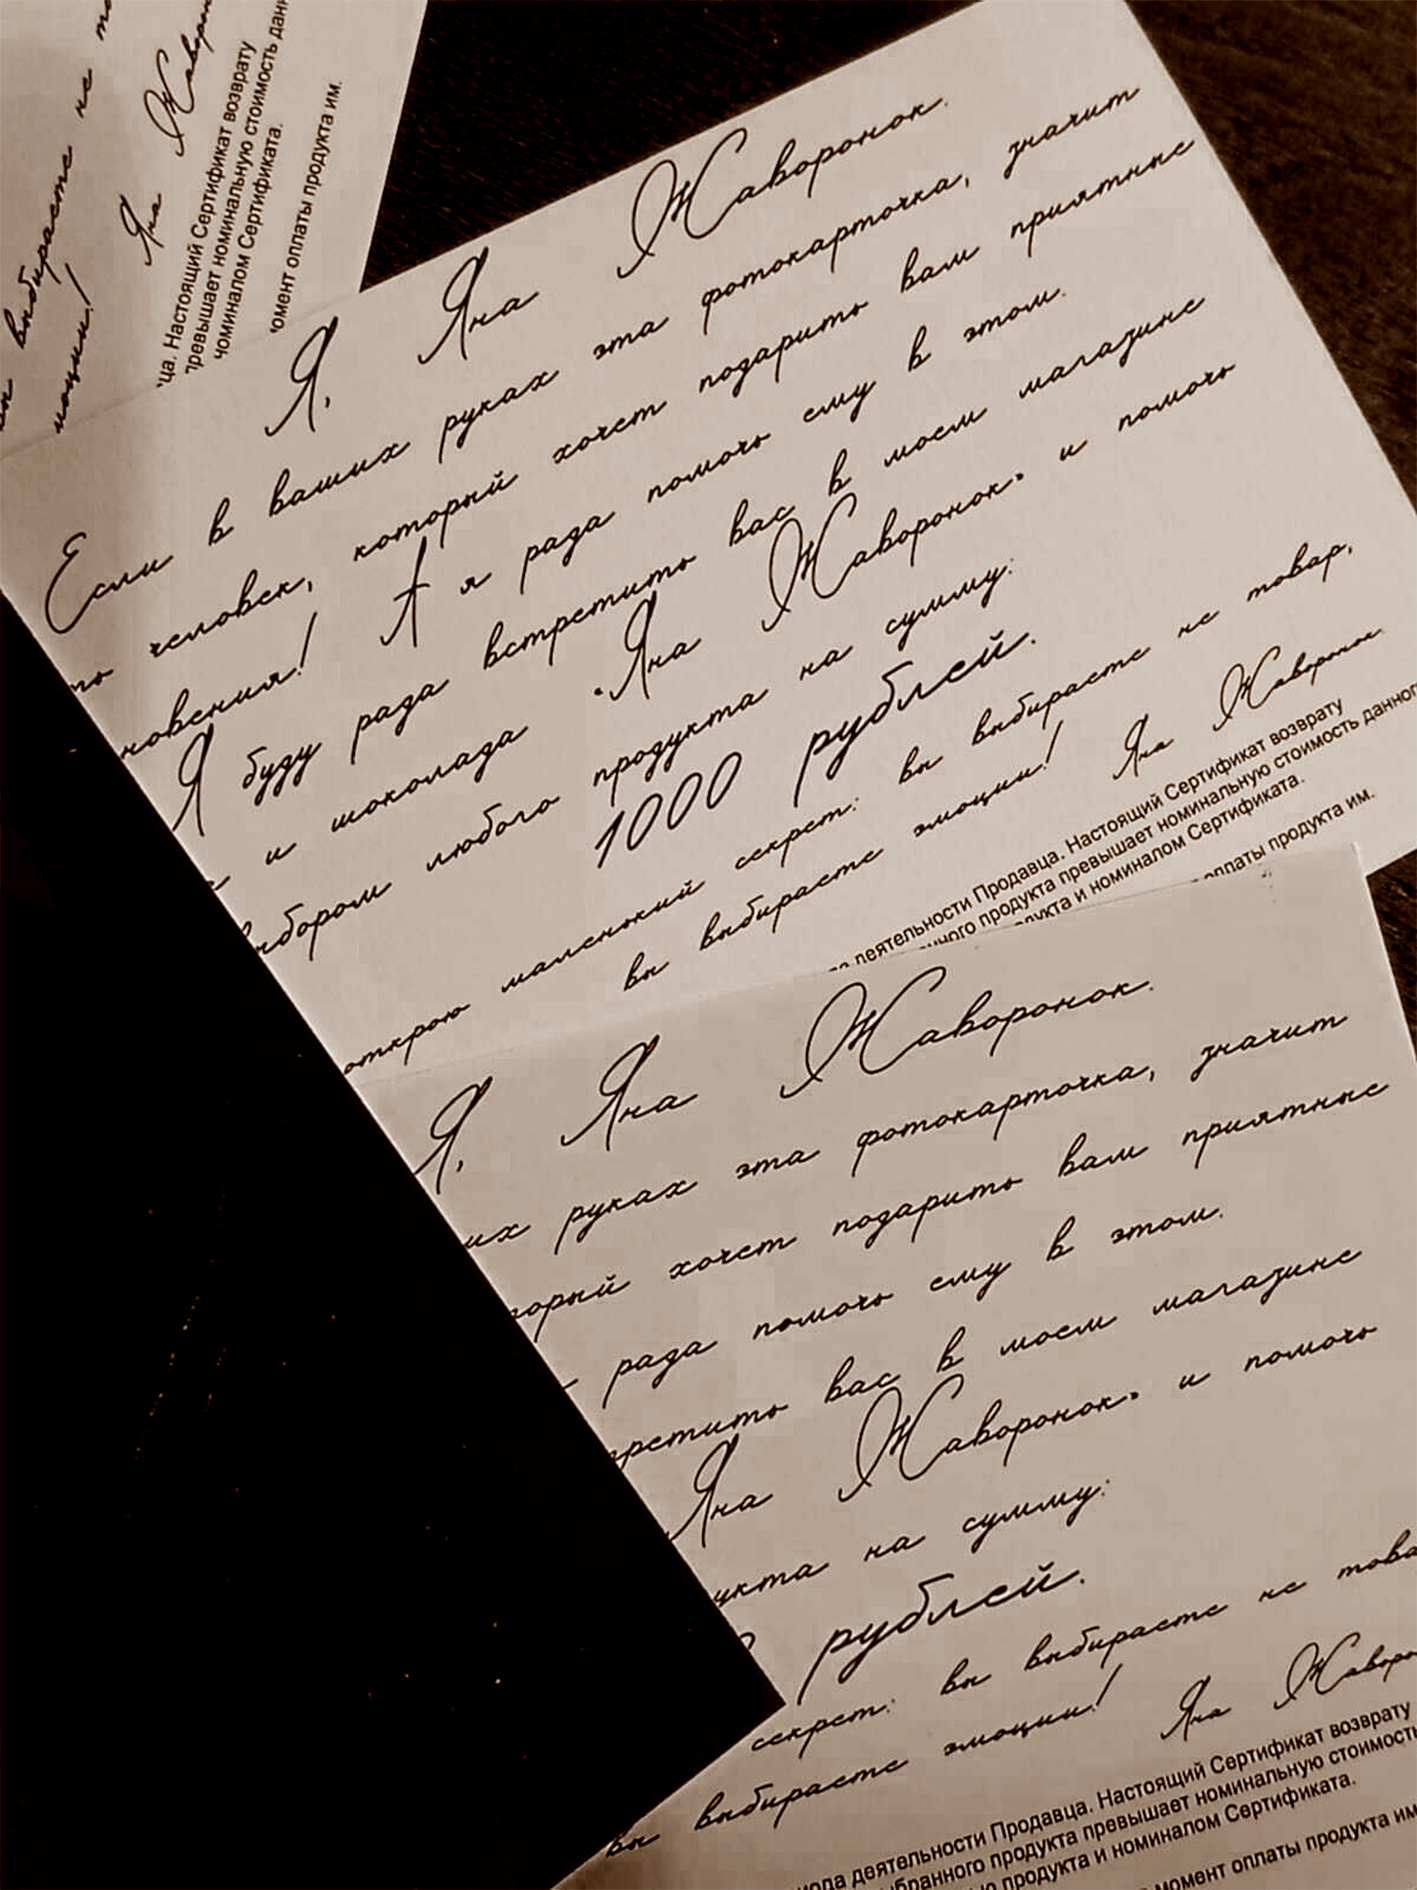 выбираете не
эмоции!
Яна
Настоящий Сертификат возврату
превышает номинальную стоимость
номиналом Сертификата.
оплаты продукта им.
Я, Яна Жаворонок.
Если в ваших руках эта фотокарточка, значит
человек, который хочет подарить вам приятные
новения! А я рада помочь ему в этом.
Я буду рада встретить вас в моем магазине
и шоколада "Яна Жаворонок" и помочь
выбором любого продукта на сумму:
1000 рублей.
открою маленький секрет: вы выбираете не товар,
вы выбираете эмоции!
Яна Жаворонок
деятельности Продавца. Настоящий Сертификат возврату
нного продукта превышает номинальную стоимость данного
продукта и номиналом Сертификата.
оплаты продукта им.
Я, Яна Жаворонок.
их руках эта фотокарточка, значит
торый хочет подарить вам приятные
рада помочь ему в этом.
третить вас в моем магазине
Яна Жаворонок" и помочь
укта на сумму:
рублей.
секрет: вы выбираете не това
вы выбираете эмоции!
Яна Жаворо
иода деятельности Продавца. Настоящий Сертификат возврату
ыбранного продукта превышает номинальную стоимость
ю продукта и номиналом Сертификата.
момент оплаты продукта им